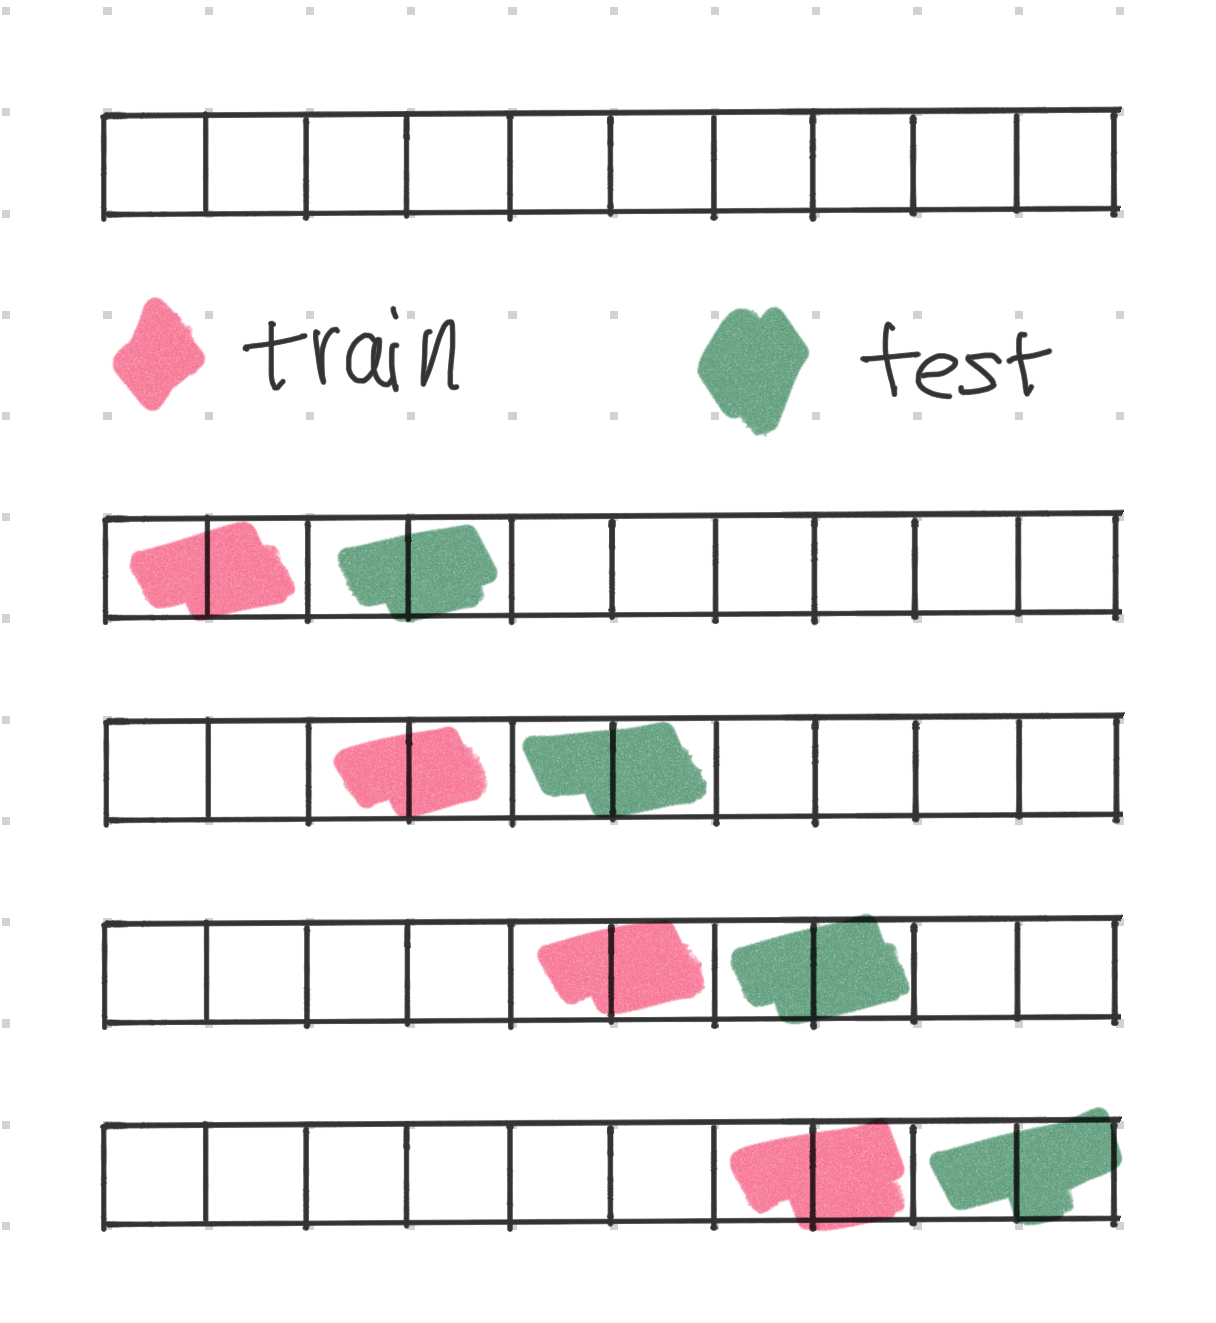 train test